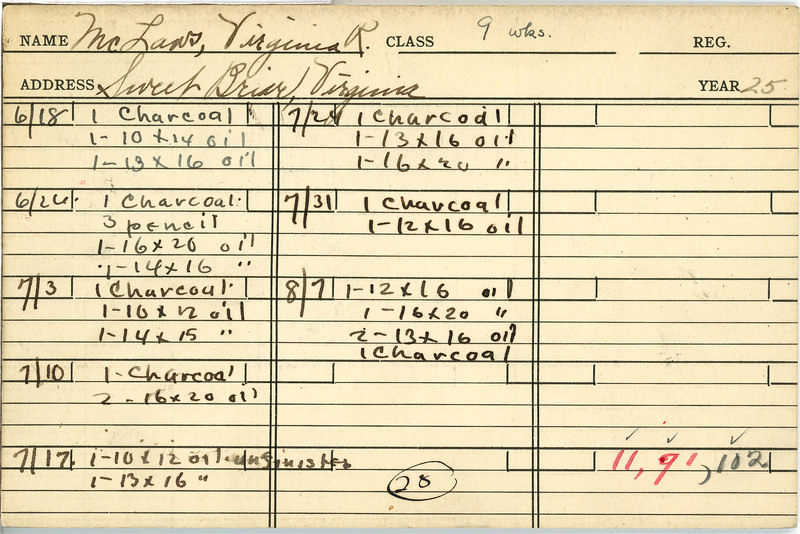 NAME McLaws, Virginia R. CLASS 9 wks. REG.
ADDRESS Sweet Briar, Virginia YEAR 25
6/18 1 Charcoal
1-10 x 14 oil
1-13 x 16 oil
6/26 1 Charcoal
3 pencil
1-16 x 20 oil
1-14 x 16 "
7/3 1 Charcoal
1-10 x 12 oil
1-14 x 15 "
7/10 1-Charcoal
2-16 x 20 oil
7/17 1-10 x 12 oil-unfinished
1-13 x 16 "
7/24 1 Charcoal
1-13 x 16 oil
1-16 x 20 "
7/31 1 Charcoal
1-12 x 16 oil
8/7 1-12 x 16 oil
1-16 x 20 "
2-13 x 16 oil
1 Charcoal
28
11, 91, 102